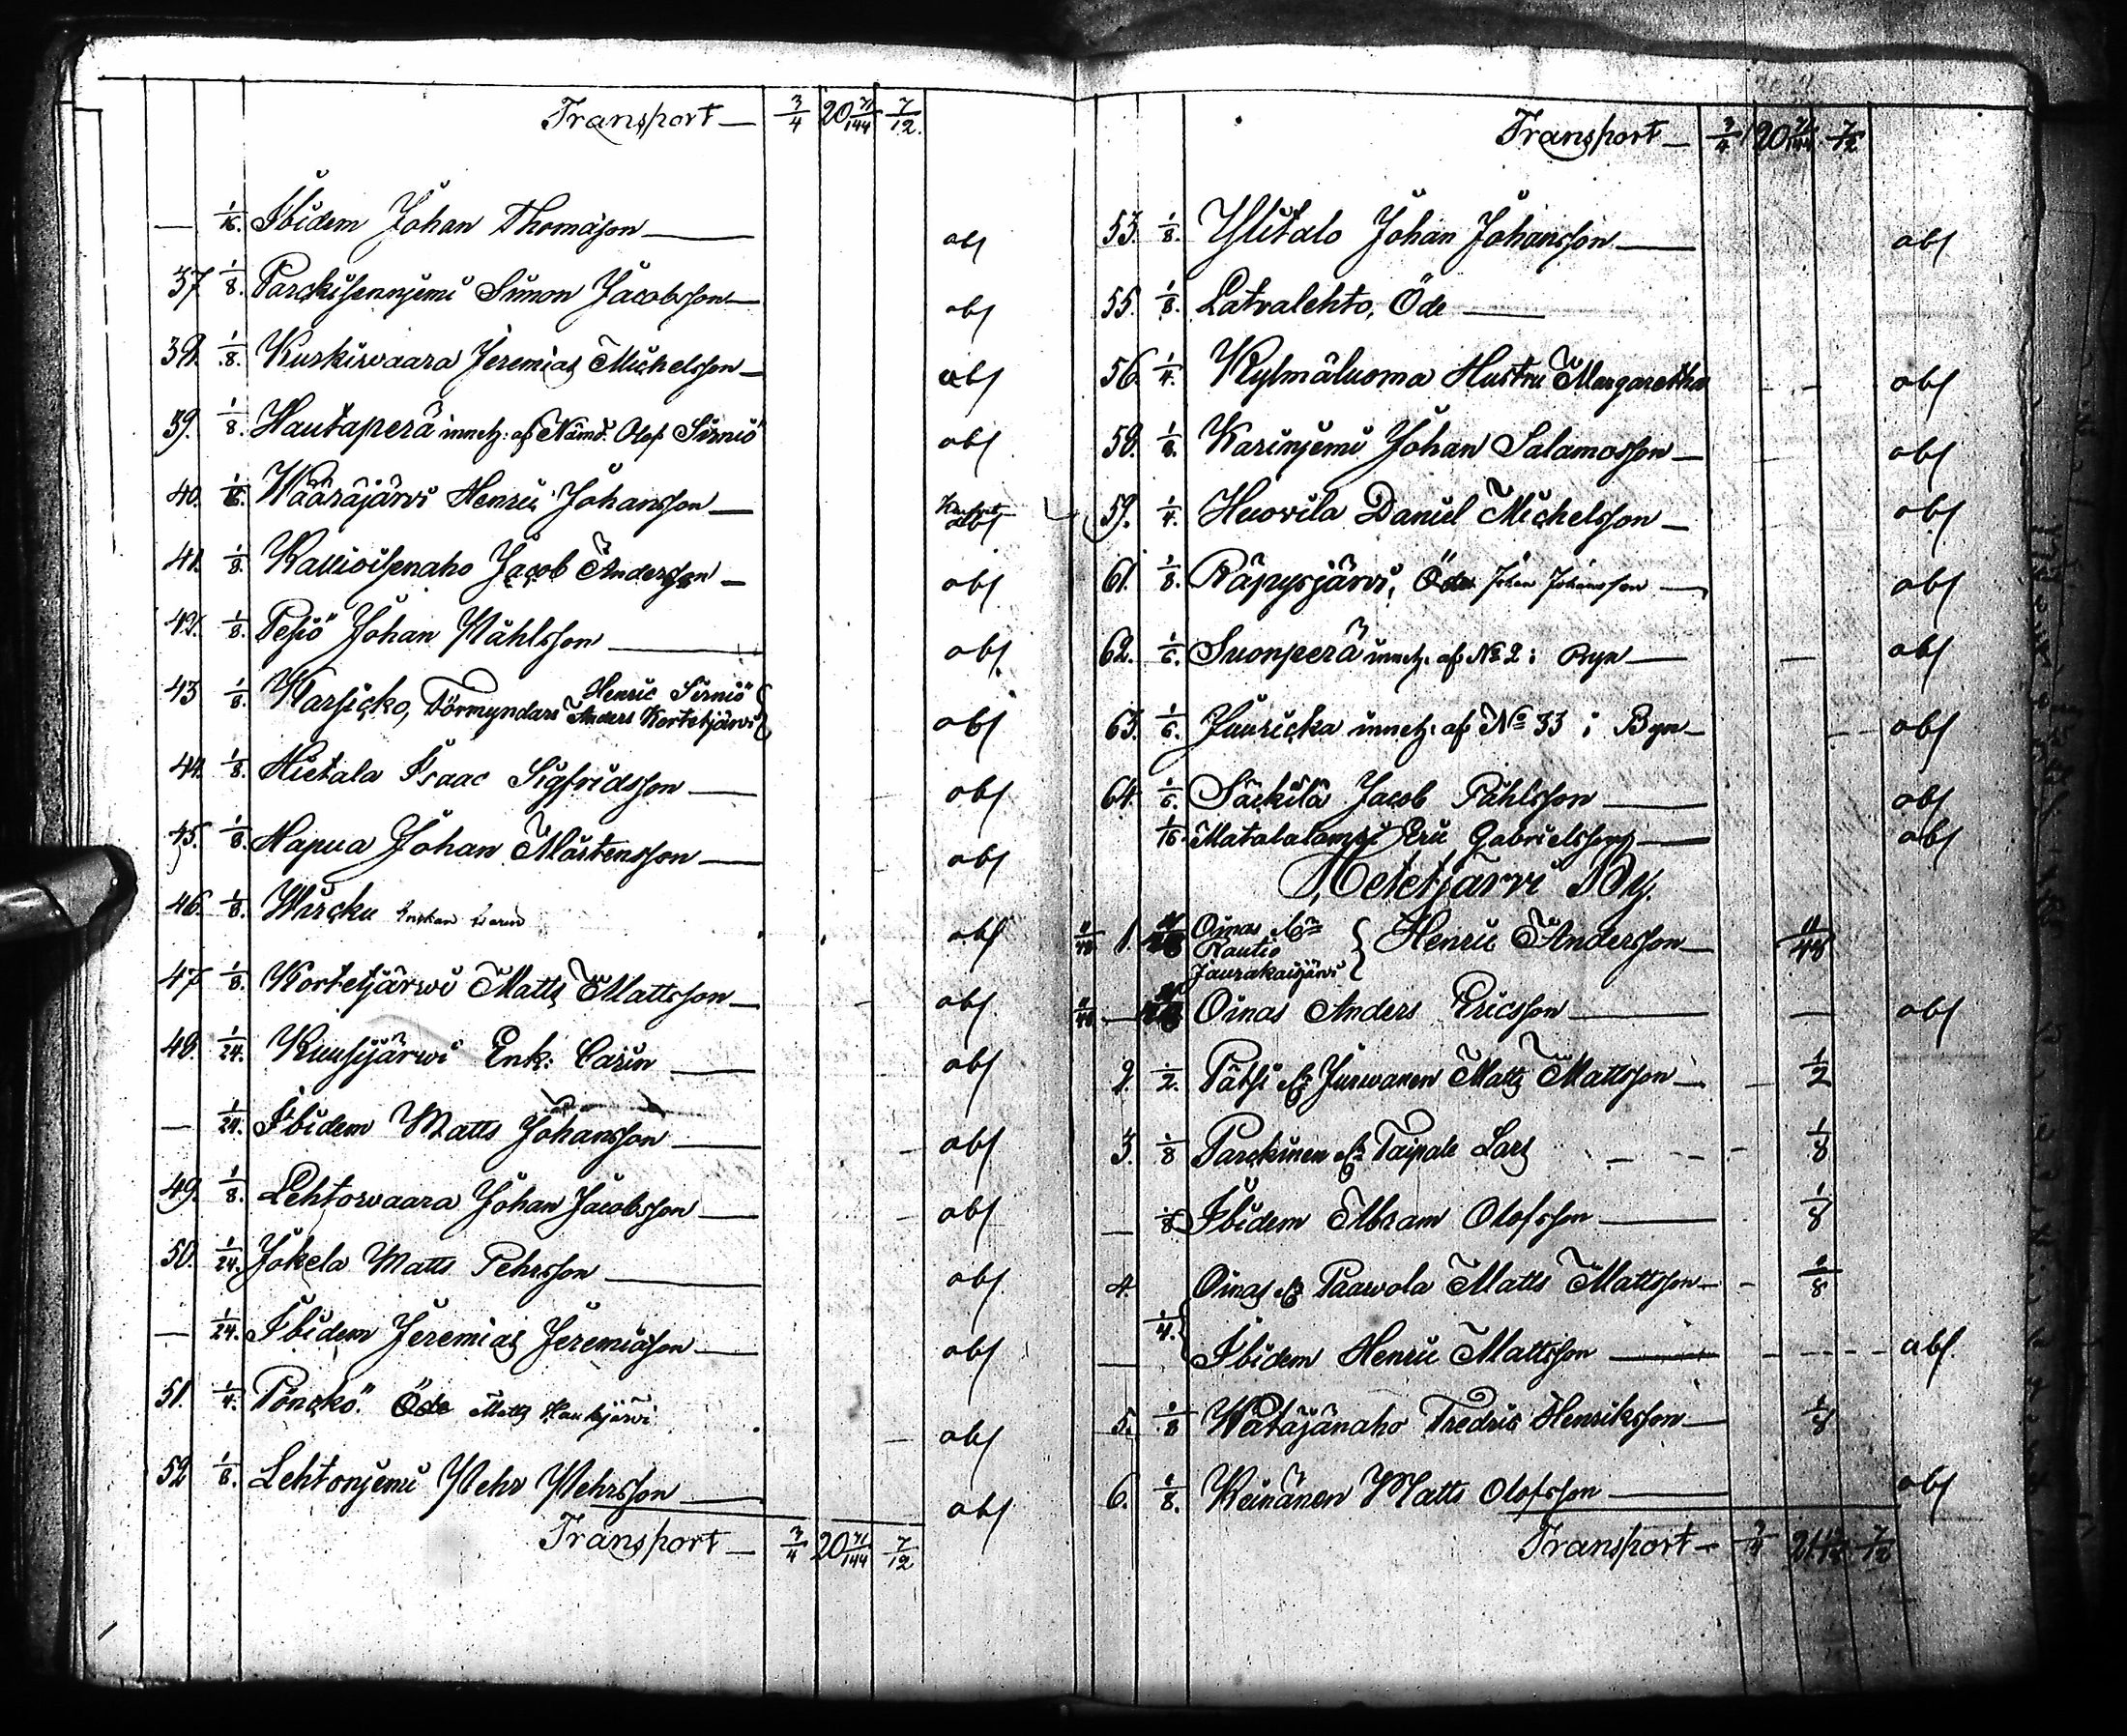 Transport — 3/4 20 71/144 7/12.
— 1/16. Ibidem Johan Thomasson — abs
37 1/8. Parckisenniemi Simon Jacobsson — abs
38. 1/8. Kurkiwaara Jeremias Michelsson — abs
39. 1/8. Hautaperä inneh: af Nämd: Olof Sirniö abs
40. Wääräjärvi Henric Johansson — abs
41. 1/8. Kallioisenaho Jacob Andersson — abs
42. 1/8. Pesiö Johan Påhlsson — abs
43 1/8. Karsicko, Förmyndare Henric Sirniö
Anders Kortetjärvi abs
44. 1/8. Hietala Isaac Sigfridsson — abs
45. 1/8. Hapua Johan Mårtensson — abs
46. 1/8. Wircku Enckan abs
47 1/8. Kortetjärwi Matts Mattsson — abs
48. 1/24. Kuusijärwi Enk: Carin — abs
— 1/24. Ibidem Matts Johansson — abs
49. 1/8. Lehtowaara Johan Jacobsson — abs
50. 1/24. Jokela Matts Pehrsson — abs
— 1/24. Ibidem Jeremias Jeremiasson — abs
51. 1/4. Pönckö. Öde Matts Haukijärvi abs
52 1/8. Lehtoniemi Pehr Pehrsson — abs
Transport — 3/4 20 71/144 7/12
Transport — 3/4 20 71/144 7/12
53. 1/8. Ylitalo Johan Johansson — abs
55. 1/8. Latvalehto, Öde —
56. 1/4. Kylmäluoma Hustru Margaretha abs
58. 1/8. Kariniemi Johan Salamosson — abs
59. 1/4. Huovila Daniel Michelsson — abs
61. 1/8. Räpysjärvi, Öde Johan Johansson — abs
62. 1/6. Suonperä inneh. af No 2 i Byn — abs
63. 1/6. Juuricka inneh. af No 33 i Byn — abs
64. 1/6. Säckilä Jacob Påhlsson — abs
1/16. Matalalampi Eric Gabrielsson — abs
Hetetjärvi By.
11/48 1. Oinas &
Rautio
Jaurakaisjärvi } Henric Andersson — 11/48
— Oinas Anders Ericsson — abs
2. 1/2. Pätsi & Jurwanen Matts Mattsson — 1/2
3. 1/8 Parckinen & Taipale Lars 1/8
— 1/8 Ibidem Abram Olofsson — 1/8
4 Oinas & Paawola Matts Mattsson — 1/8
— 1/4. Ibidem Henric Mattsson — abs.
5. 1/8 Wätäjänaho Fredric Henriksson — 1/8
6. 1/8. Keinänen Matts Olofsson — abs
Transport —